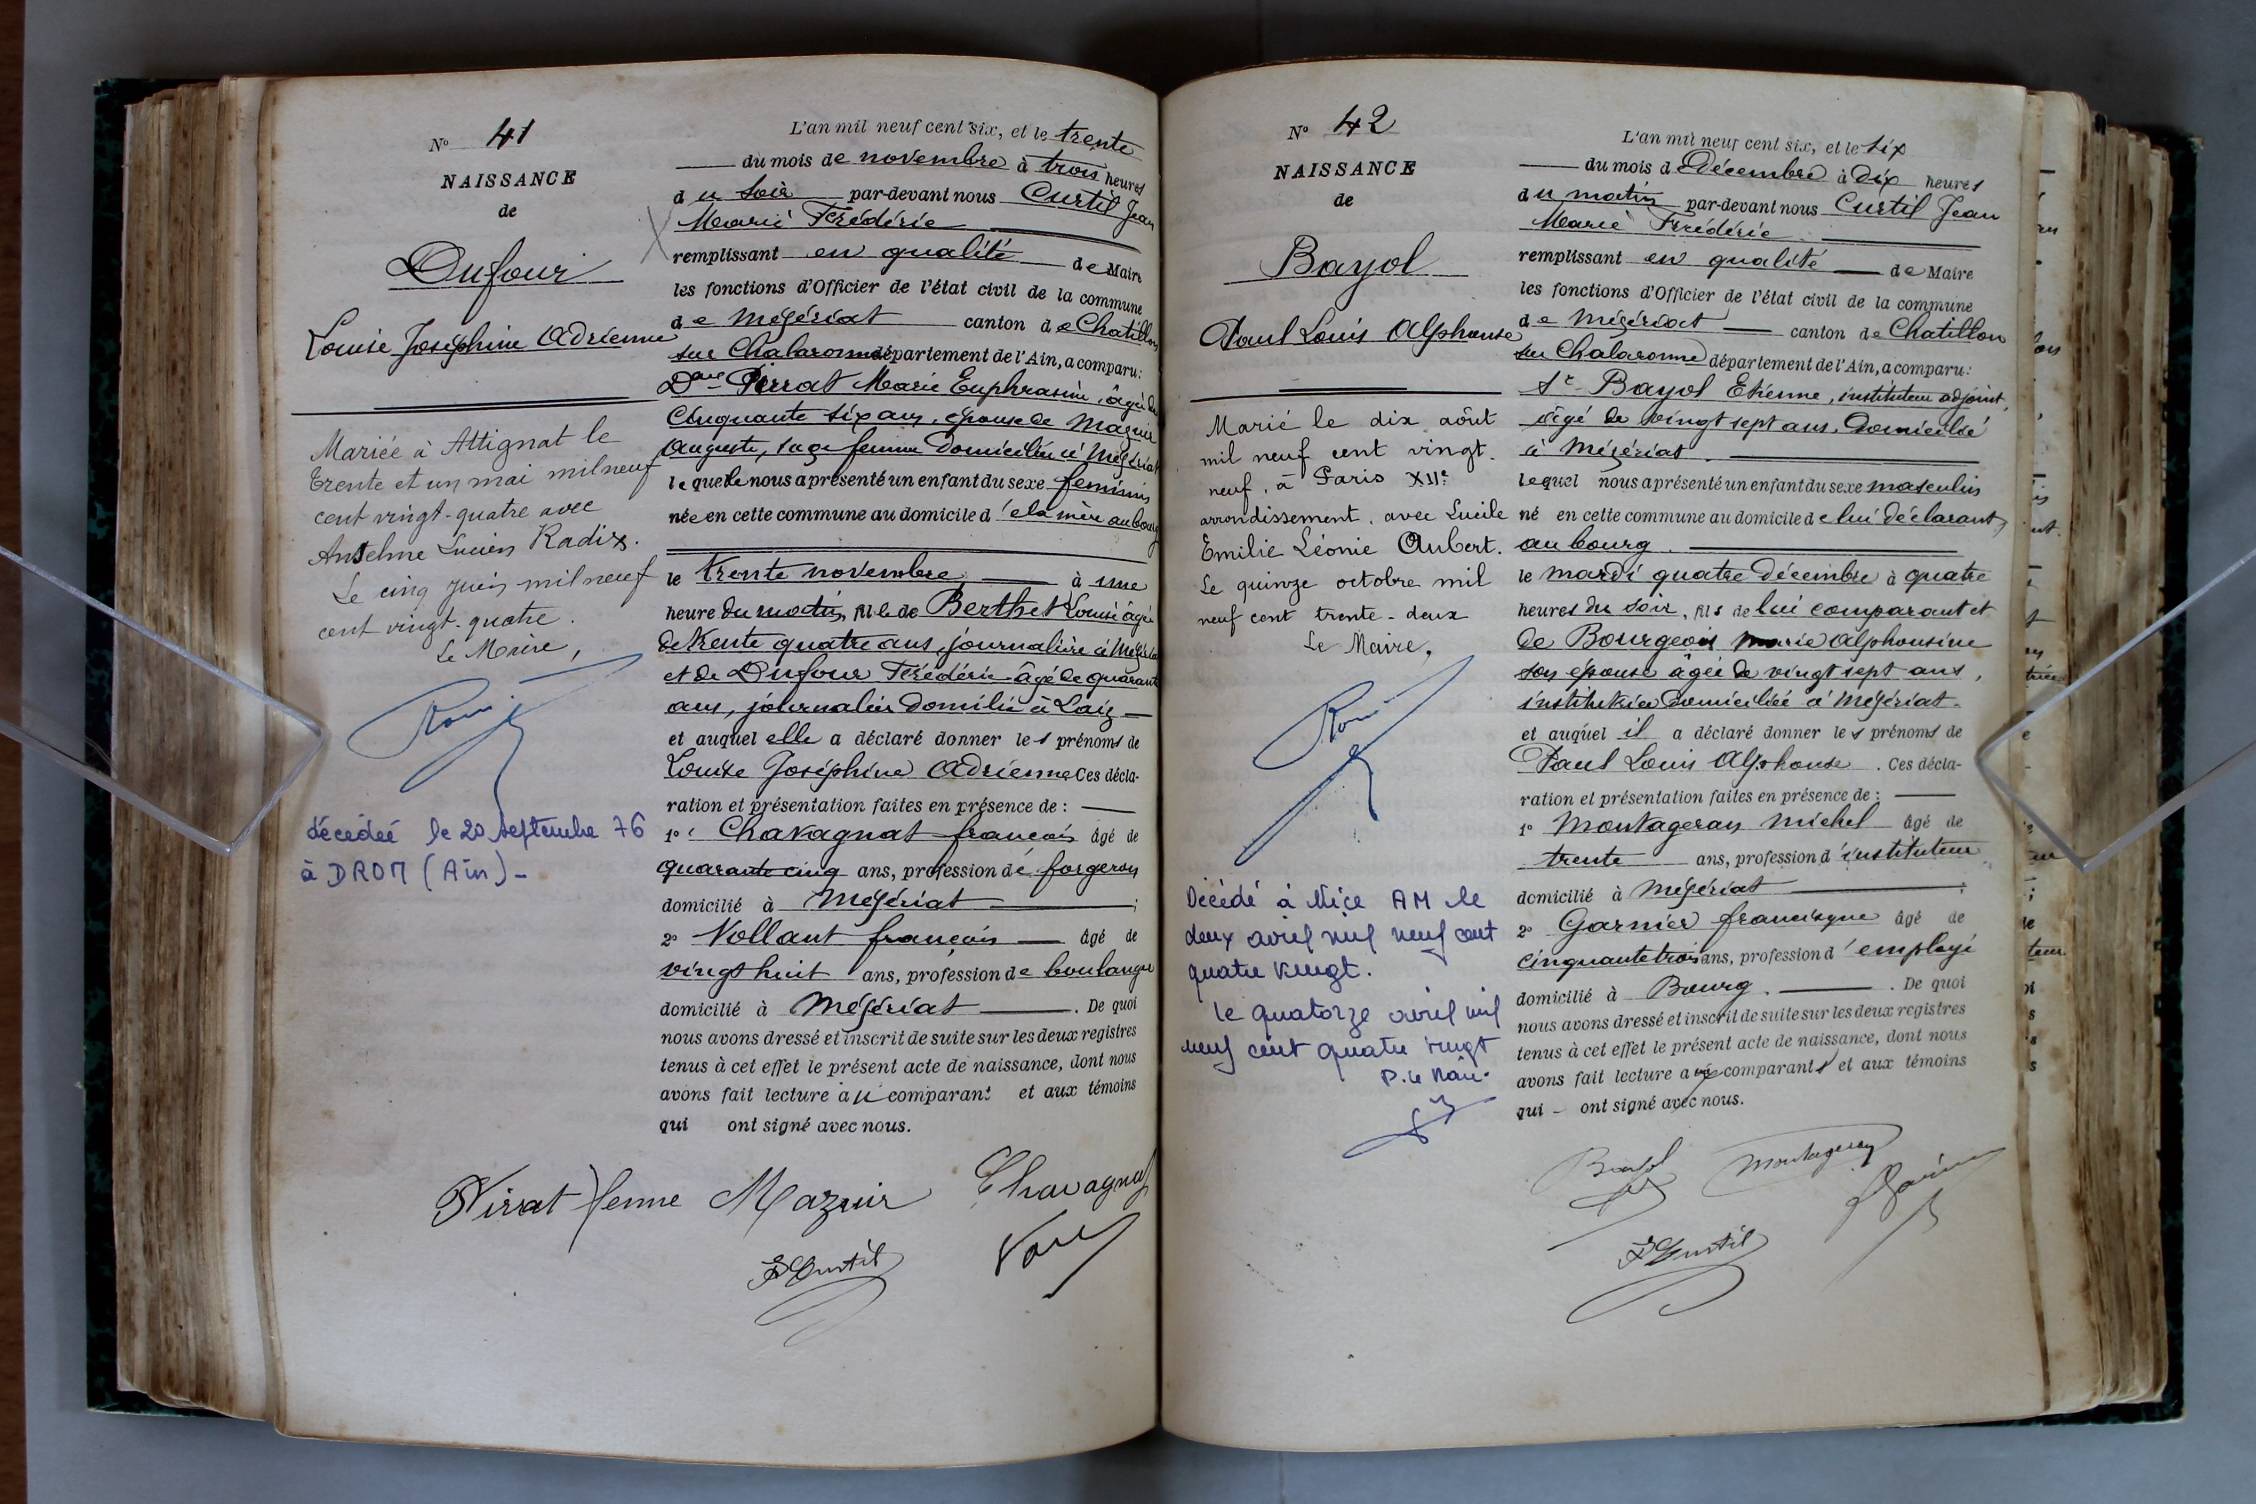 N° 41
NAISSANCE
de
Dufour
Louise Joséphine Adrienne
Mariée à Attignat le
trente et un mai mil neuf
cent vingt-quatre avec
Anselme Lucien Radix.
Le cinq juin mil neuf
cent vingt-quatre.
Le Maire,
décédée le 20 septembre 76
à DROM (Ain)-
L'an mil neuf cent six, et le trente
du mois de novembre à trois heures
du soir par-devant nous Curtil Jean
Marie Frédéric
remplissant en qualité de Maire
les fonctions d'Officier de l'état civil de la commune
de Mézériat canton de Chatillon
sur Chalaronne département de l'Ain, a comparu:
Dame Pirrat Marie Euphrasine, âgée de
cinquante six ans, épouse de Mazuir
Auguste, sage femme domiciliée à Mézériat
lequelle nous a présenté un enfant du sexe féminin
née en cette commune au domicile de la mère au bourg
le trente novembre à une
heure du matin, fille de Berthet Louise âgée
de trente quatre ans, journalière à Mézériat
et de Dufour Frédéric âgé de quarante
ans, journalier domilié à Laiz
et auquel elle a déclaré donner les prénoms de
Louise Joséphine Adrienne Ces décla-
ration et présentation faites en présence de :
1° Chavagnat françois âgé de
quarante cinq ans, profession de forgeron
domicilié à Mézériat ;
2° Vollant françois âgé de
vingt huit ans, profession de boulanger
domicilié à Mézériat . De quoi
nous avons dressé et inscrit de suite sur les deux registres
tenus à cet effet le présent acte de naissance, dont nous
avons fait lecture au comparant et aux témoins
qui ont signé avec nous.
Pirrat femme Mazuir Chavagnat
F Curtil
N° 42
NAISSANCE
de
Bayol
Paul Louis Alphonse
Marié le dix août
mil neuf cent vingt.
neuf, à Paris XIIe
arrondissement, avec Lucile
Emilie Léonie Aubert.
Le quinze octobre mil
neuf cent trente-deux
Le Maire,
Décédé à Nice AM le
deux avril mil neuf cent
quatre vingt.
le quatorze avril mil
neuf cent quatre vingt
P. le Maire
L'an mil neuf cent six, et le six
du mois de Décembre à dix heures
du matin par-devant nous Curtil Jean
Marie Frédéric
remplissant en qualité de Maire
les fonctions d'Officier de l'état civil de la commune
de Mézériat canton de Chatillon
sur Chalaronne département de l'Ain, a comparu:
Sr Bayol Etienne, instituteur adjoint,
âgé de vingt sept ans, domicilié
à Mézériat.
lequel nous a présenté un enfant du sexe masculin
né en cette commune au domicile de lui déclarant,
au bourg.
le mardi quatre décembre à quatre
heures du soir, fils de lui comparant et
de Bourgeois marie alphonsine
son épouse âgée de vingt sept ans,
institutrice domiciliée à Mézériat.
et auquel il a déclaré donner les prénoms de
Paul Louis Alphonse . Ces décla-
ration et présentation faites en présence de :
1° Montageran Michel âgé de
trente ans, profession d'instituteur
domicilié à Mézériat ;
2° Garnier francisque âgé de
cinquante trois ans, profession d'employé
domicilié à Bourg. . De quoi
nous avons dressé et inscrit de suite sur les deux registres
tenus à cet effet le présent acte de naissance, dont nous
avons fait lecture aux comparants et aux témoins
qui - ont signé avec nous.
Bayol Montageran
F Curtil